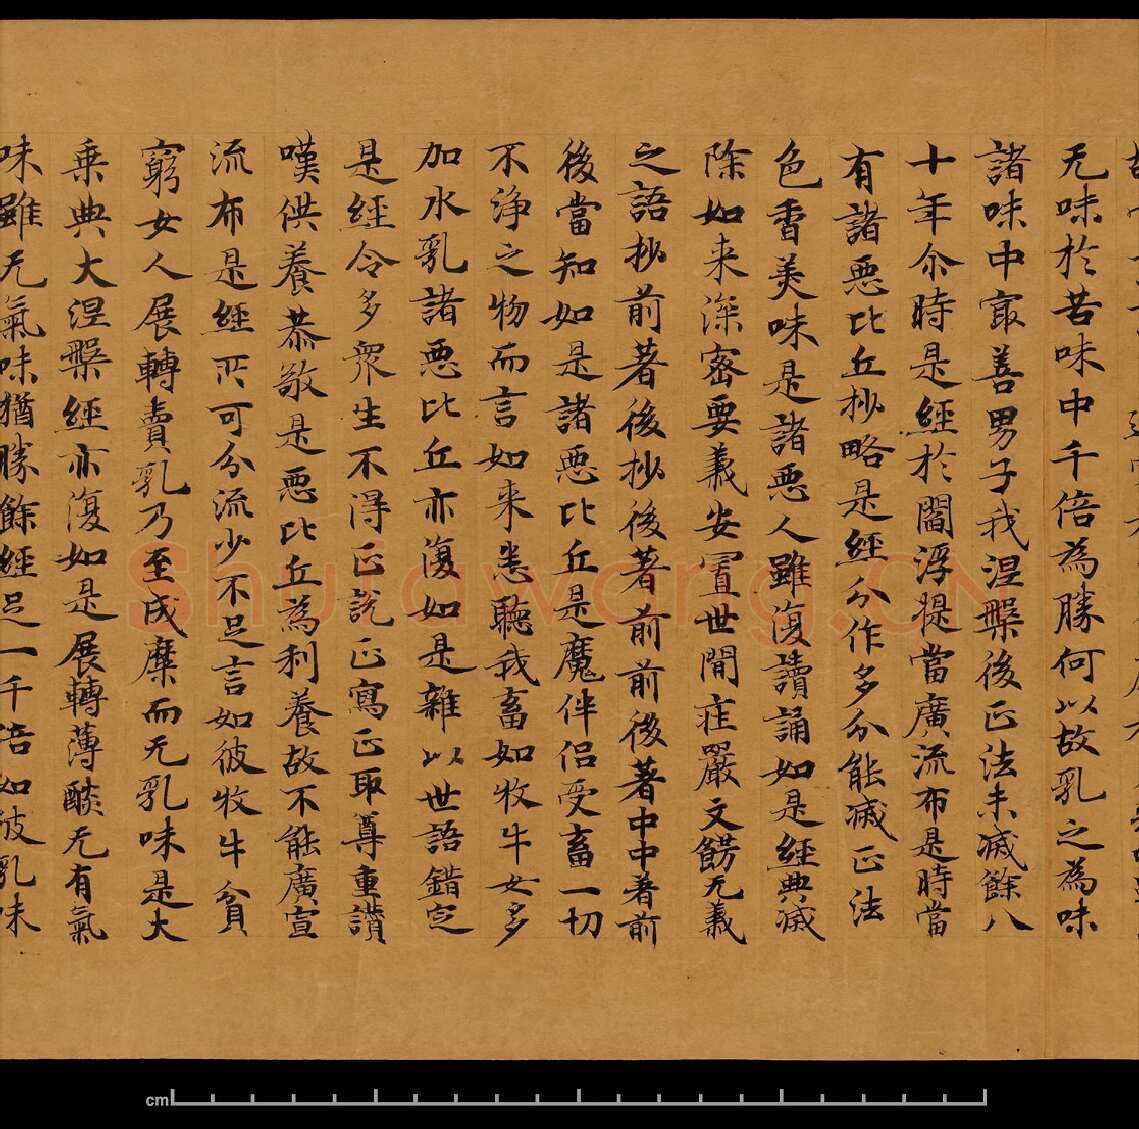 无味於苦味中千倍為勝何以故乳之為味
諸味中冣善男子我涅槃後正法未滅餘八
十年尒時是經於閻浮提當廣流布是時當
有諸惡比丘抄略是經分作多分能滅正法
色香美味是諸惡人雖復讀誦如是經典滅
除如来深密要義安置世間疰嚴文餝无義
之語抄前著後抄後著前前後著中中著前
後當知如是諸惡比丘是魔伴侣受畜一切
不淨之物而言如来悉聽我畜如牧牛女多
加水乳諸惡比丘亦復如是雜以世語錯定
是經令多眾生不得正說正寫正取尊重讚
嘆供養恭敬是惡比丘為利養故不能廣宣
流布是經所可分流少不足言如彼牧牛貧
窮女人展轉賣乳乃至成糜而无乳味是大
乗典大涅槃經亦復如是展轉薄酸无有氣
味雖无氣味猶勝餘經足一千倍如彼乳味
Shufawang.CN
cm